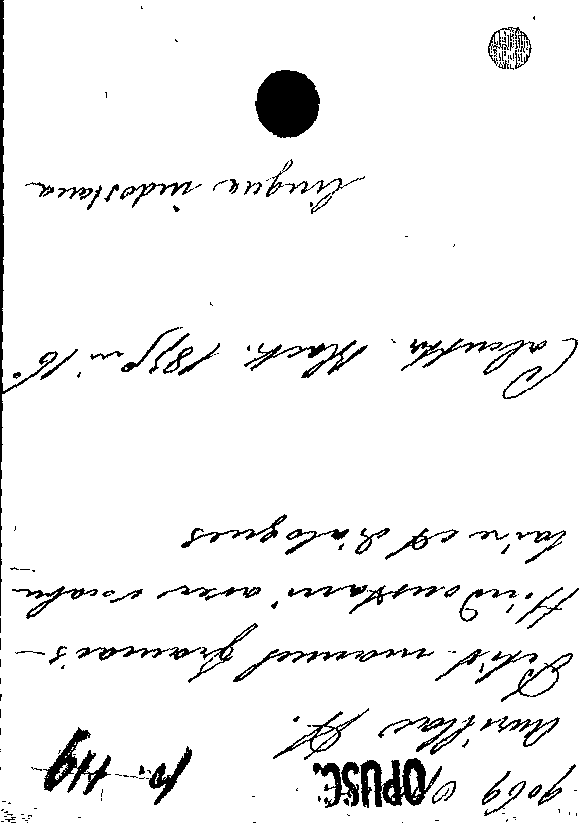 9069 OPUSC. n. 119
Aurillac H.
Petit manuel français-
Hindoustani avec vocabu-
laire et dialogues
Calcutta. Black. 18 in 16°
lingua indostana